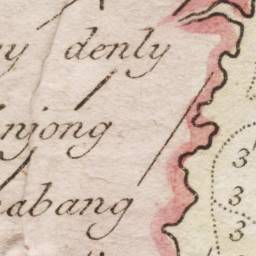 y denly
njong
abang
3
3
3
3